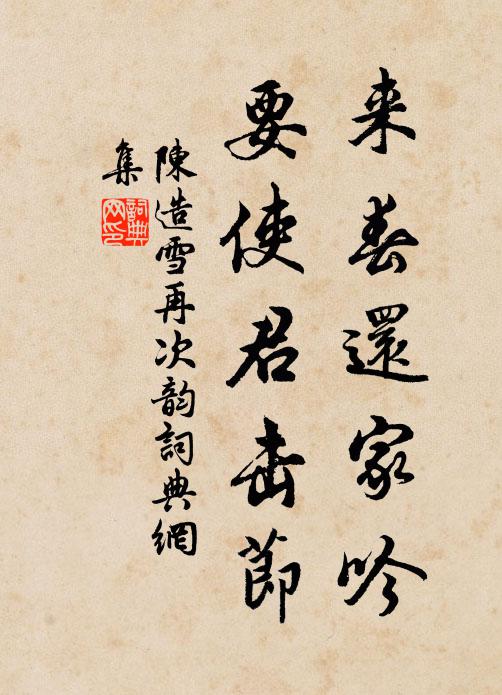 来春還家吟
要使君击節
陳造雪再次韵詞典網
集
詞典网印